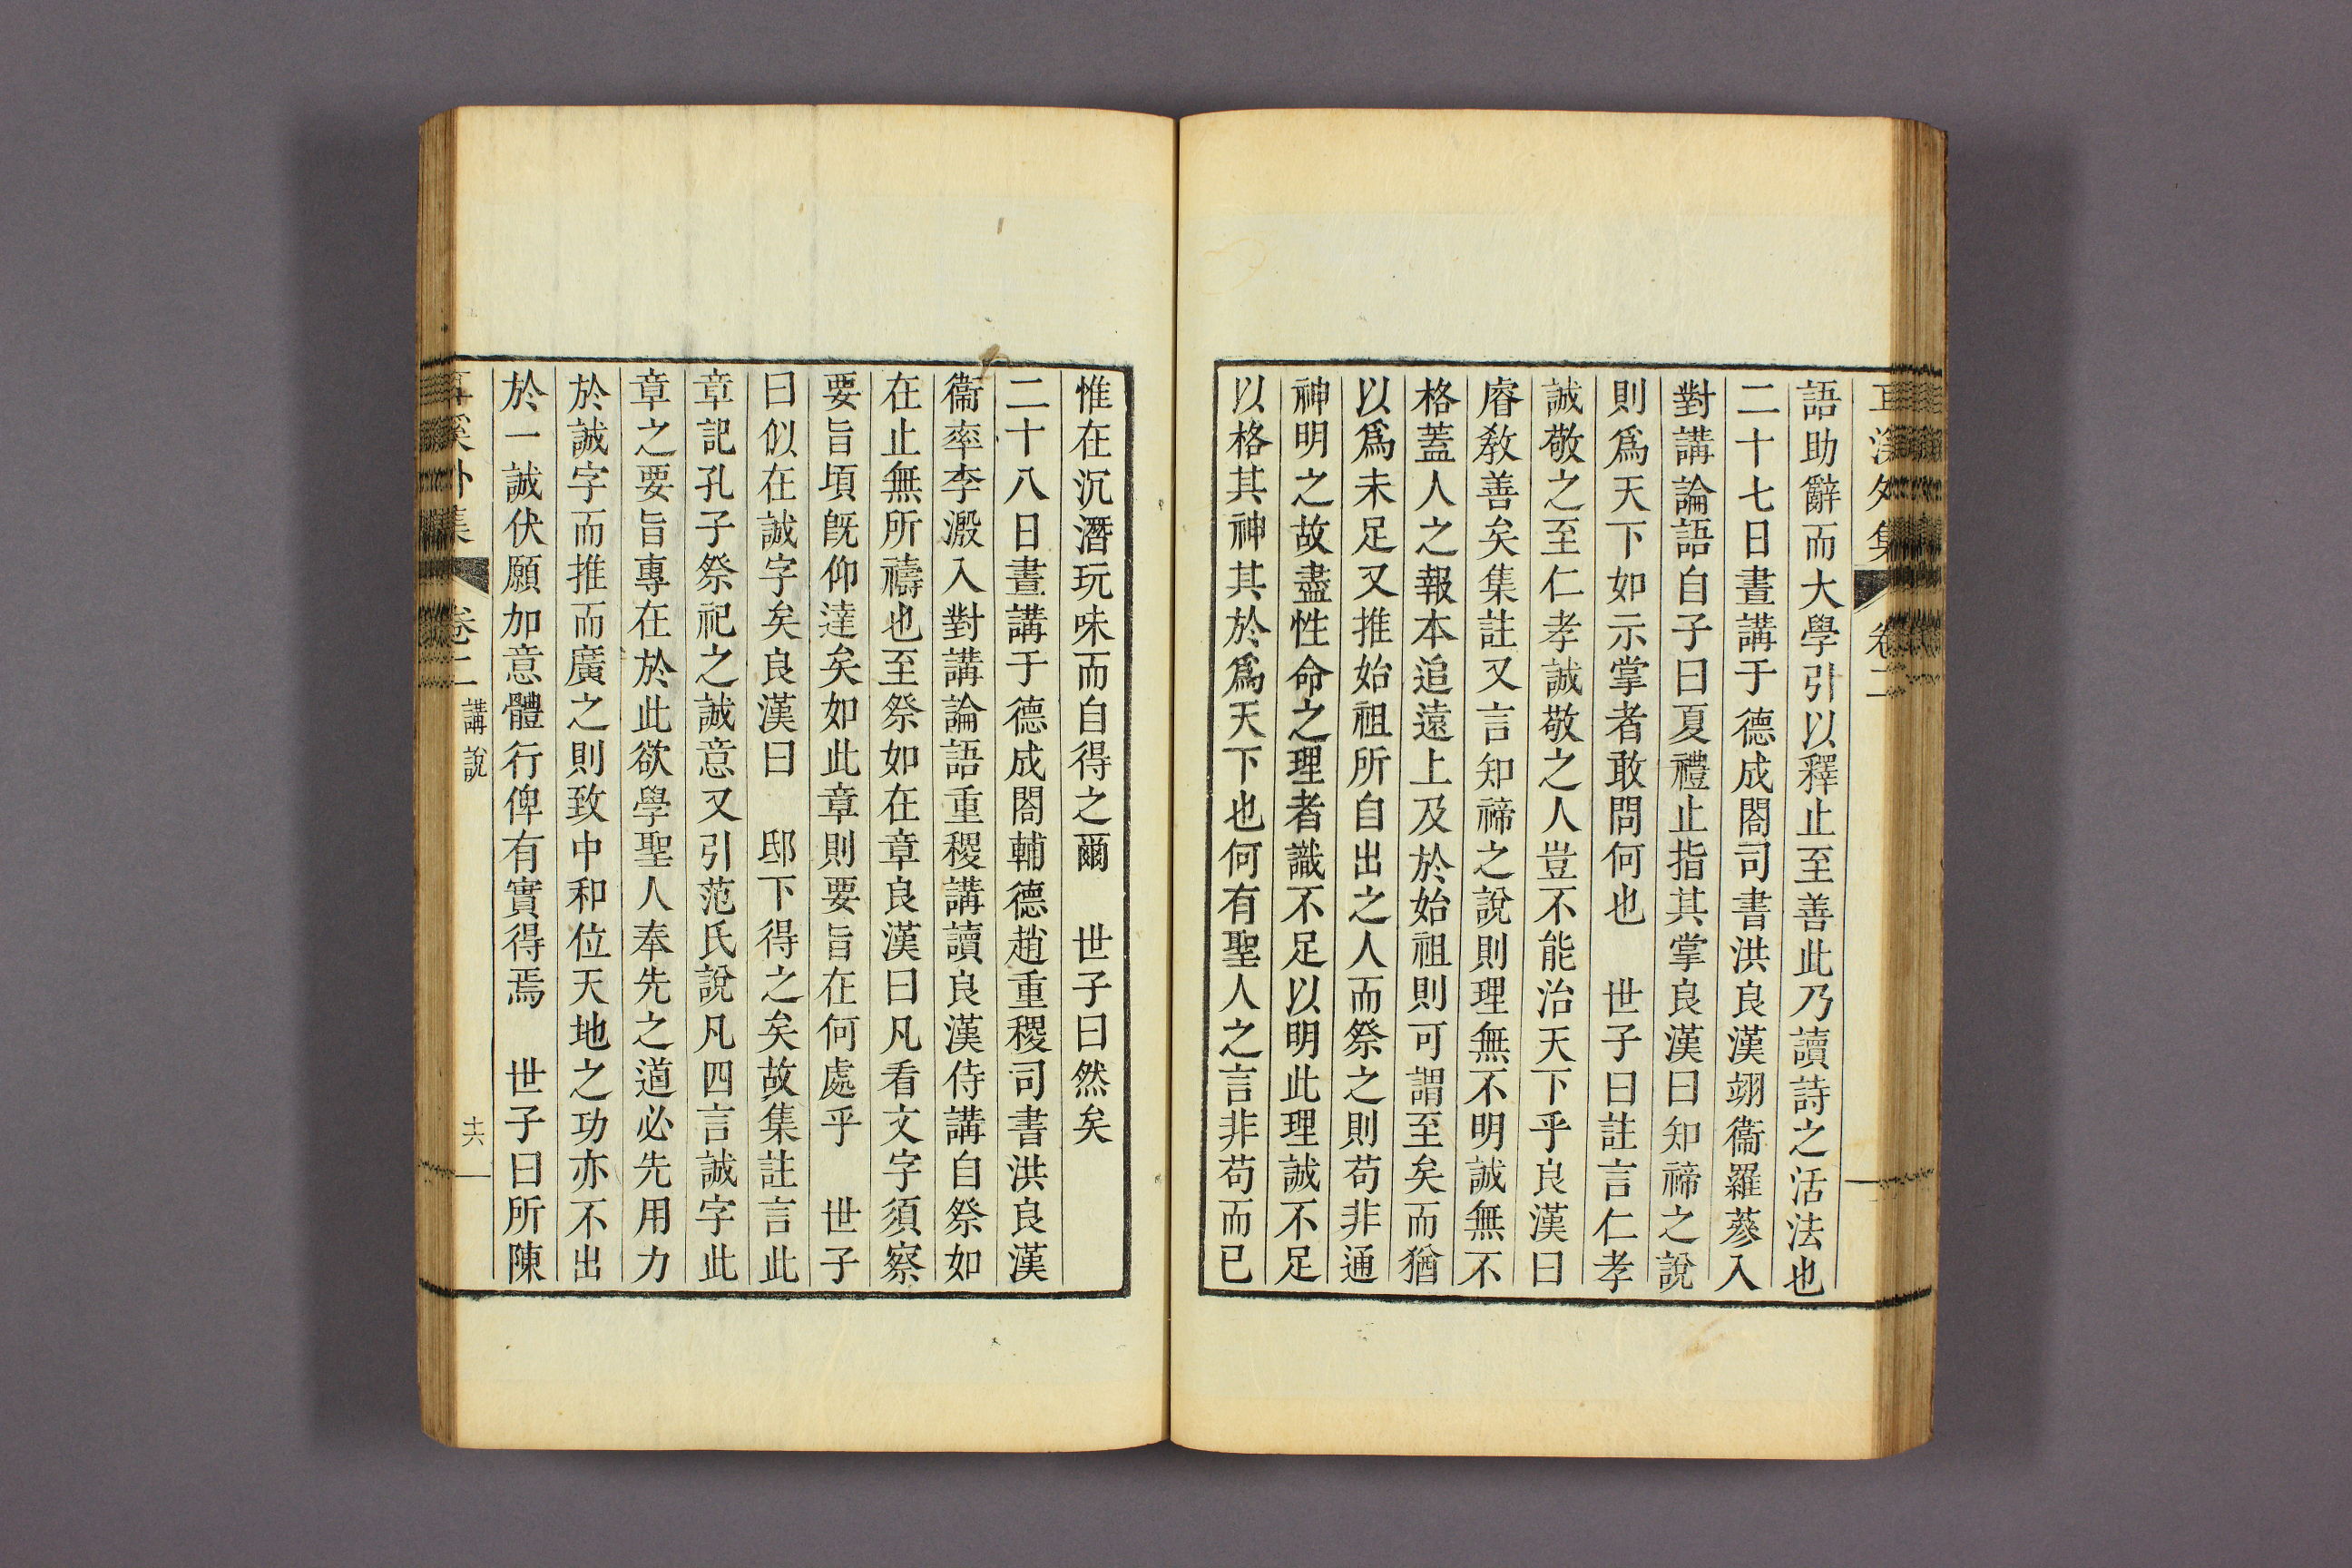 耳溪外集 卷二
語助辭而大學引以釋止至善此乃讀詩之活法也
二十七日晝講于德成閤司書洪良漢翊衞羅蔘入
對講論語自子曰夏禮止指其掌良漢曰知禘之說
則爲天下如示掌者敢問何也 世子曰註言仁孝
誠敬之至仁孝誠敬之人豈不能治天下乎良漢曰
睿敎善矣集註又言知禘之說則理無不明誠無不
格蓋人之報本追遠上及於始祖則可謂至矣而猶
以爲未足又推始祖所自出之人而祭之則苟非通
神明之故盡性命之理者識不足以明此理誠不足
以格其神其於爲天下也何有聖人之言非苟而已
惟在沉潛玩味而自得之爾 世子曰然矣
二十八日晝講于德成閤輔德趙重稷司書洪良漢
衞率李㵢入對講論語重稷講讀良漢侍講自祭如
在止無所禱也至祭如在章良漢曰凡看文字須察
要旨頃旣仰達矣如此章則要旨在何處乎 世子
曰似在誠字矣良漢曰 邸下得之矣故集註言此
章記孔子祭祀之誠意又引范氏說凡四言誠字此
章之要旨專在於此欲學聖人奉先之道必先用力
於誠字而推而廣之則致中和位天地之功亦不出
於一誠伏願加意體行俾有實得焉 世子曰所陳
耳溪外集 卷二 講說 十六